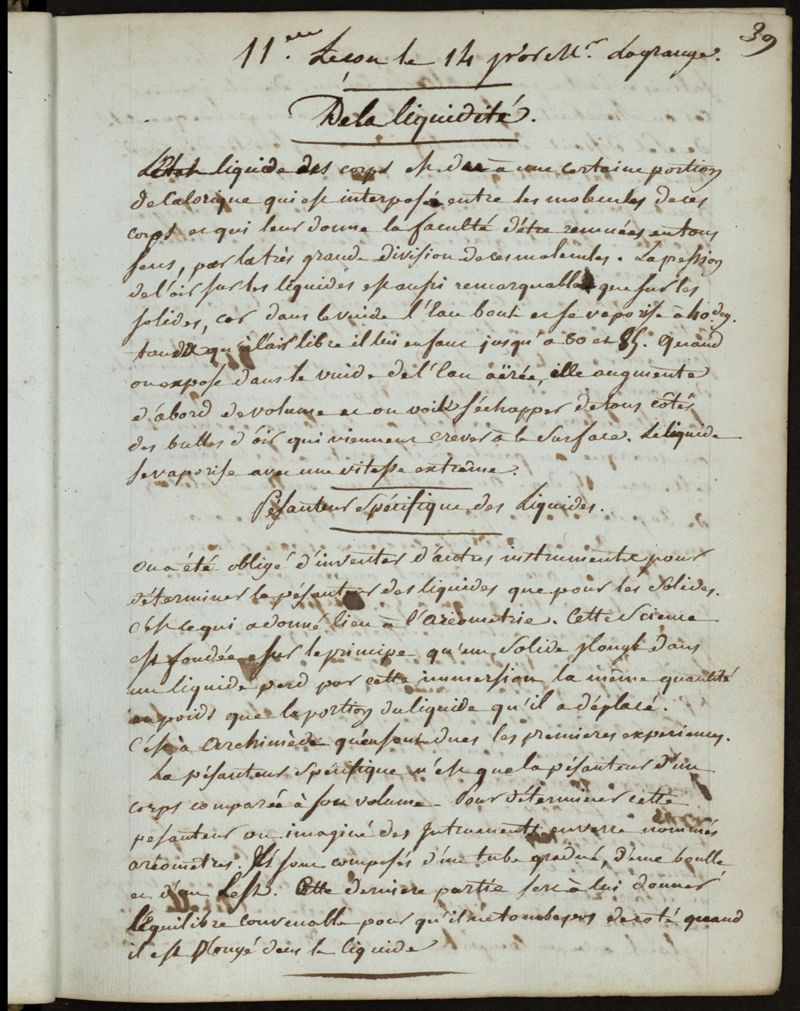 39
11.eme Leçon le 14 par Mr. Lagrange.
De la liquidité.
L'état liquide des corps est due à une certaine portion
de Calorique qui est interposé entre les molecules de ces
corps et qui leur donne la faculté d'être remuées en tous
sens, par la très grande division de ces molecules. La pession
de l'air sur les liquides est aussi remarquable que sur les
solides, car dans le vuide l'Eau bout et se vaporise à 40 deg.
tandis qu'à l'air libre il lui en faut jusqu'à 80 et 85. Quand
on expose dans le vuide de l'Eau aërée, elle augmente
d'abord de volume et on voit s'échapper de tous côtés
des bulles d'air qui viennent crever à la surface. Le liquide
se vaporise avec une vitesse extrême.
Pésanteur Spécifique des Liquides.
On a été obligé d'inventer d'autres instruments pour
déterminer la pésanteur des liquides que pour les solides.
C'est ce qui a donné lieu à l'Aréometrie. Cette Science
est fondée sur le principe qu'un solide plongé dans
un liquide perd par cette immersion la même quantité
en poids que la portion du liquide qu'il a déplacé.
C'est à Archimède qu'en sont dues les premieres experiences.
La pésanteur Spécifique n'est que la pésanteur d'un
corps comparée à son volume. Pour déterminer cette
pesanteur on imaginé des Intruments en verre nommés
aréometres. Ils sont composés d'un tube gradué, d'une boulle
et d'un Lest. Cette derniere partie sert à lui donner
l'équilibre convenable pour qu'il ne tombe pas de coté quand
il est plongé dans le liquide